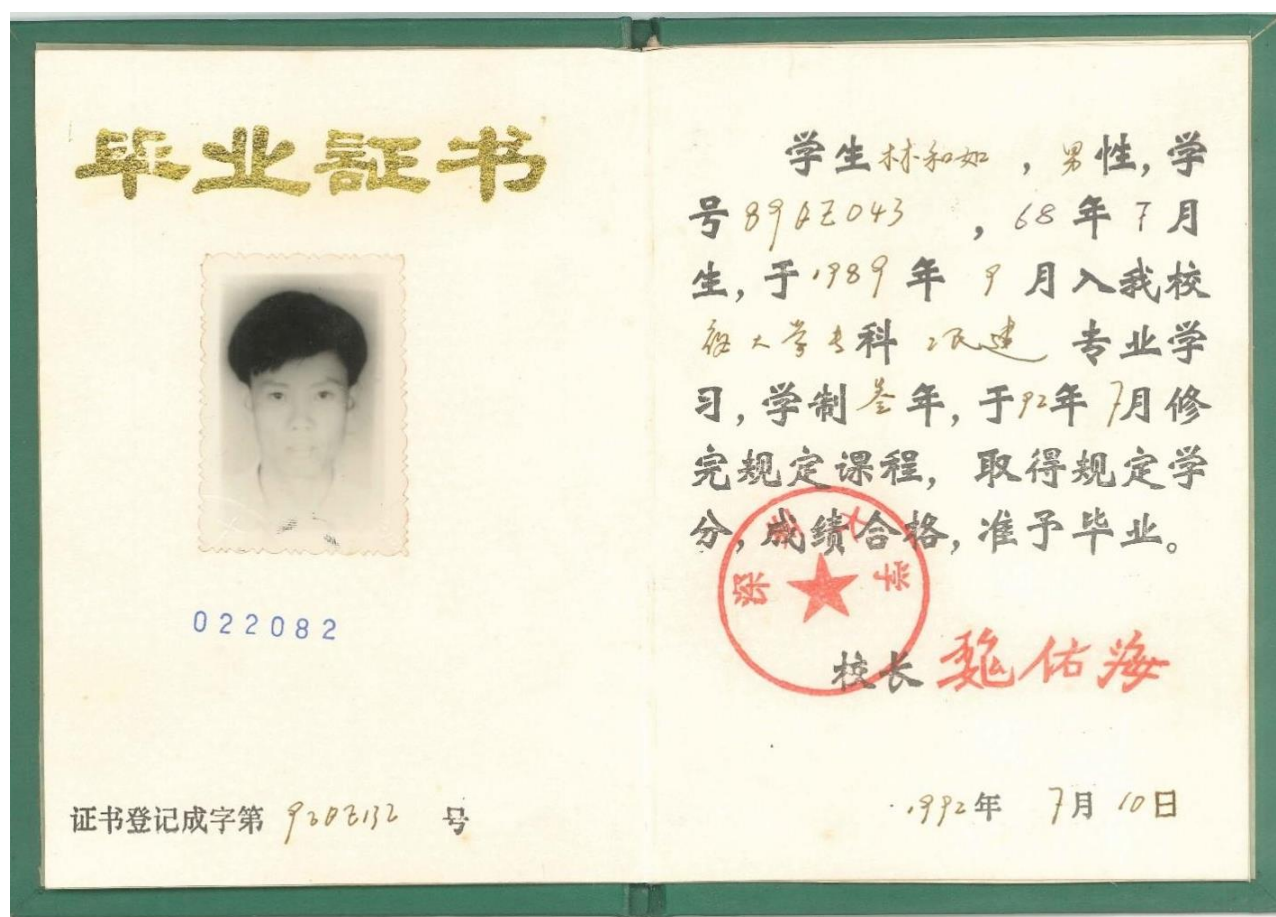 毕业証书
022082
证书登记成字第 92BZ132 号
学生林和如，男性，学
号89BZ043，68年7月
生，于1989年9月入我校
大学专科 建 专业学
习，学制叁年，于92年7月修
完规定课程，取得规定学
分，成绩合格，准予毕业。
深圳大学
校长 魏佑海
1992年 7月 10日